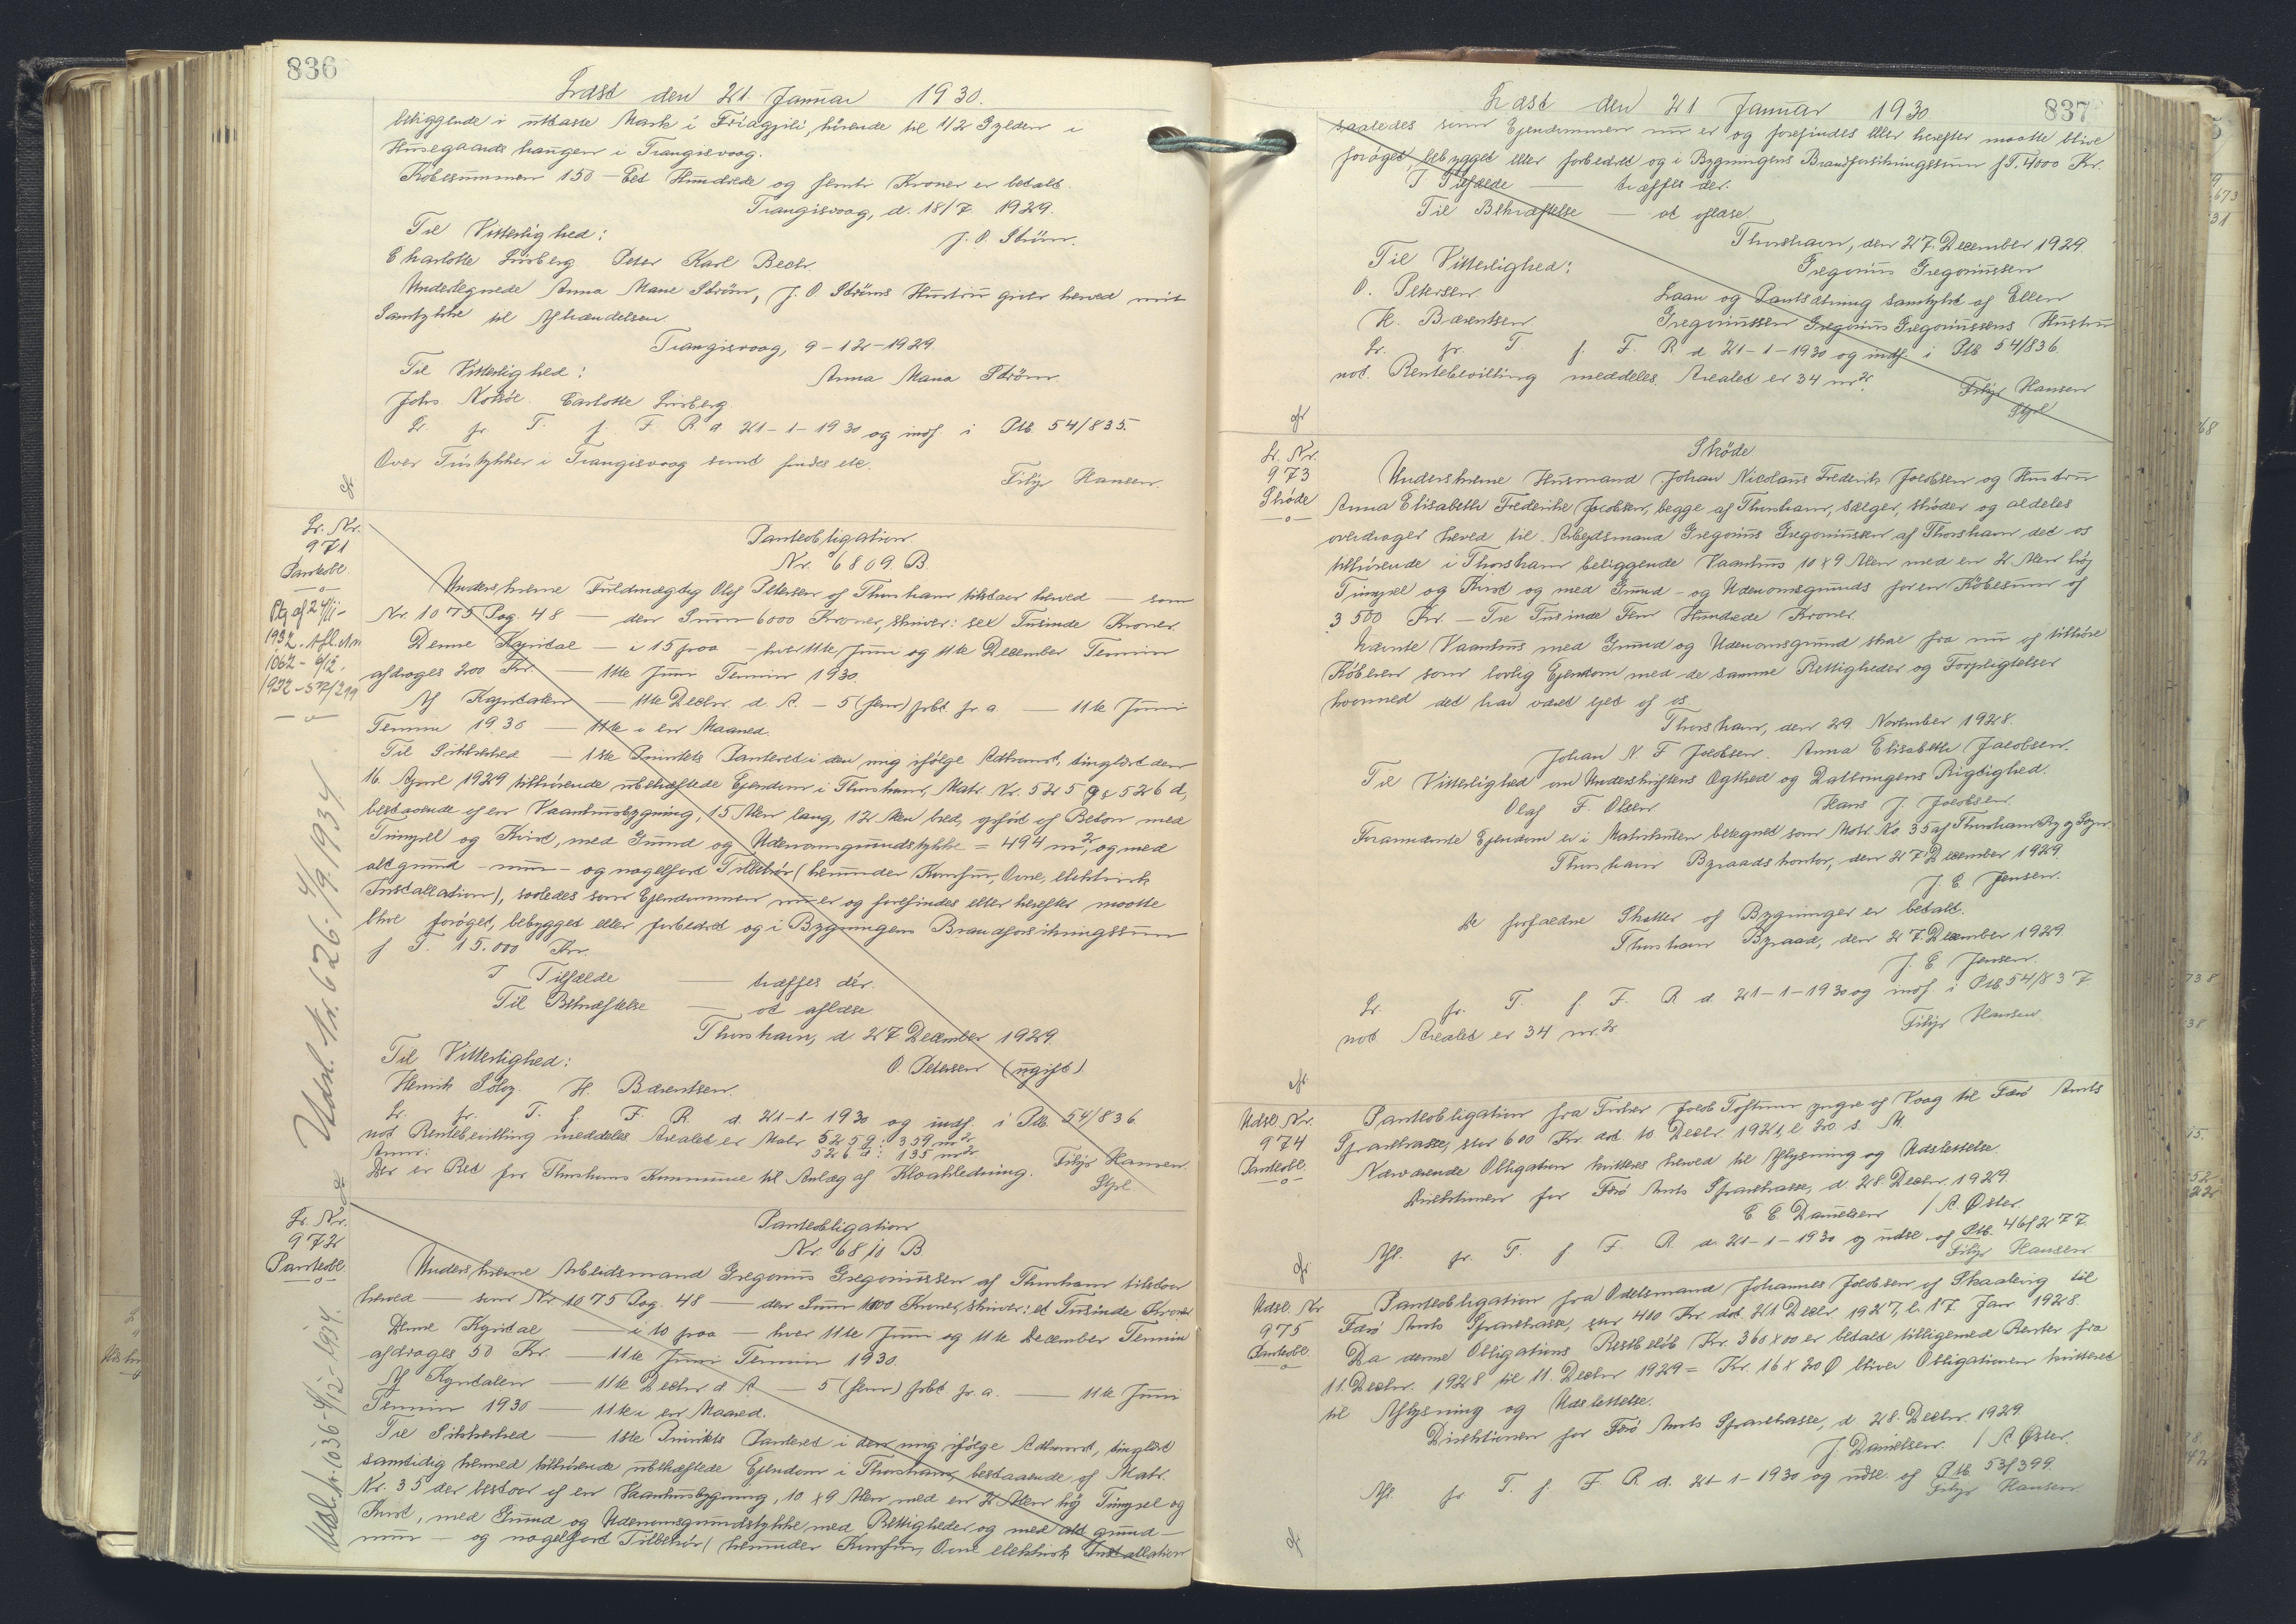 836
Læst den 21 Januar 1930.
beliggende i udlaste Mark i Friagjili, hörende til 1/2 Gylden i
Husegaards haugen i Trangisvaag.
Købesummen 150 – Eet Hundrede og femti Kroner er betalt.
Trangisvaag, d. 18/7 1929.
Til Vitterlighed: J. O. Ström.
Charlotte Lisberg Peter Karl Bech.
Undertegnede Anna Marie Ström, J. O. Ströms Hustru giver herved mit
Samtykke til Afhændelsen.
Trangisvaag, 9-12-1929.
Til Vitterlighed: Anna Maria Ström.
Johs. Carlotte Lisberg
Lr. fr. T. f. F. R. d. 21-1-1930 og indf. i Ptb. 54/835.
Over Tüstykker i Trangisvaag samt findes etc.
Filip Hansen.
Lr. Nr.
971
Panteobl.
Ptg af 24/11-
1932. Afl. Nr.
1062 - 6/12.
1932 - 57/299
Udsl. Nr. 626. 4/9. 1934
Panteobligation.
Nr. 6809. B.
Underskrevne Fuldmægtig Olaf Petersen af Thorshavn tilstaar herved — som
Nr. 1075 Pag. 48 — den Sum 6000 Kroner, skriver: sex Tusinde Kroner.
Denne Kapital — i 15 paa – hver 11te Juni og 11te December Termin
afdrages 200 Kr. — 11te Juni Termin 1930.
Af Kapitalen — 11te Decbr. d. A. – 5 (fem) pCt. pr a. — 11te Juni
Termin 1930 — 11te i en Maaned.
Til Sikkerhed — 1ste Prioritets Panteret i den mig ifölge Adkomst, tinglæst den
16. April 1929 tilhörende ubehæftede Ejendom i Thorshavn, Matr. Nr. 525 g & 526 d,
bestaaende af en Vaaningsbygning, 15 Alen lang, 12 Alen bred, opført af Beton med
Timpel og Kvist, med Grund og Udenomsgrundstykke = 494 m², og med
alt grund – mur – og nagelfast Tilbehör (herunder Komfur, Ovne, elektrisk
Installation), saaledes som Ejendommen nu er og forefindes eller herefter maatte
blive foröget, bebygget eller forbedret og i Bygningens Brandforsikringssum
f T. 15.000 Kr.
I Tilfælde — træffes der.
Til Bekræftelse — at aflæse.
Thorshavn, d. 27 December 1929.
Til Vitterlighed: O. Petersen (ugift)
Henrik H. Bærentsen.
Lr. fr. T. f. F. R. d. 21-1-1930 og indf. i Ptb. 54/836.
not Rentebevilling meddeles Arealet er Matr 525 g: 359 m²
Anm: 526 d: 135 m²
Der er Ret for Thorshavns Kommune til Anlæg af Kloakledning. Filip Hansen.
Stpl
Lr. Nr.
972
Panteobl.
Udsl. Nr. 1036 - 4/12 - 1934.
Panteobligation
Nr. 6810 B
Underskrevne Arbeidsmand Gregorius Gregoriussen af Thorshavn tilstaar
herved — som Nr 1075 Pag. 48 — den Sum 1000 Kroner, skriver: et Tusinde Kroner
Denne Kapital — i 10 paa — hver 11te Juni og 11te December Termin
afdrages 50 Kr. — 11te Juni Termin 1930.
Af Kapitalen — 11te Decbr d. A. — 5 (fem) pCt pr. a. — 11te Juni
Termin 1930 — 11te i en Maaned.
Til Sikkerhed — 1ste Prioritets Panteret i den mig ifölge Adkomst, tinglæst
samtidig hermed tilhörende ubehæftede Ejendom i Thorshavn, bestaaende af Matr.
Nr. 35 der bestaar af en Vaaningsbygning, 10 x 9 Alen med en 2 Alen höj Timpel og
Kvist, med Grund og Udenomsgrundstykke med Rettigheder og med alt grund –
mur – og nagelfast Tilbehör (herunder Komfur, Ovne elektrisk Installation
837
Læst den 21 Januar 1930
saaledes som Ejendommen nu er og forefindes eller herefter maatte blive
foröget, bebygget eller forbedret og i Bygningens Brandforsikringssum f T. 4000 Kr.
I Tilfælde — træffes der.
Til Bekræftelse — at aflæse.
Thorshavn, den 27. December 1929
Til Vitterlighed: Gregorius Gregoriussen
O. Petersen Laan og Pantsætning samtykt af Ellen
H. Bærentsen Gregoriussen Gregorius Gregoriussens Hustru
Lr. fr. T. f. F. R. d. 21-1-1930 og indf. i Ptb 54/836.
not. Rentebevilling meddeles. Arealet er 34 m² Filip Hansen
Stpl
Lr. Nr.
973
Sköde
Sköde
Underskrevne Husmand Johan Nicolaus Frederik Jacobsen og Hustru
Anna Elisabeth Frederike Jacobsen, begge af Thorshavn, sælger, sköder og aldeles
overdrager herved til Arbejdsmand Gregorius Gregoriussen af Thorshavn det os
tilhörende i Thorshavn beliggende Vaanhus 10 x 9 Alen med en 2 Alen höj
Timpel og Kvist og med Grund – og Udenomsgrunds for en Købesum af
3500 Kr. – Tre Tusinde Fem Hundrede Kroner.
Nævnte Vaanhus med Grund og Udenomsgrund skal fra nu af tilhöre
Köberen som lovlig Ejendom med de samme Rettigheder og Forpligtelser
hvormed det har været ejet af os.
Thorshavn, den 29. November 1928.
Johan N. F Jacobsen. Anna Elisabeth Jacobsen.
Til Vitterlighed om Underskriftens Ægthed og Dateringens Rigtighed.
Olaf F. Olsen Hans J. Jacobsen.
Forannævnte Ejendom er i Matrikulen betegnet som Matr. No. 35 af Thorshavn By og Sogn
Thorshavn Byraadskontor, den 27 December 1929
J. E. Jensen.
De forfaldne Skatter af Bygninger er betalt.
Thorshavn Byraad, den 27. December 1929
J. E Jensen.
Lr. fr. T. f F. R d. 21-1-1930 og indf. i Ptb 54/837.
not Arealet er 34 m.² Filip Hansen.
Udsl. Nr.
974
Panteobl.
Panteobligation fra Fisker Jacob Toftum yngre af Vaag til Færö Amts
Sparekasse, stor 600 Kr. dat. 10 Decbr. 1921, l. 20. s. M.
Nærværende Obligation kvitteres herved til Aflysning og Udslettelse.
Direktionen for Færö Amts Sparekasse, d. 28. Decbr. 1929.
E. E. Danielsen / A. Øster.
Afl. fr. T. f F. R. d. 21-1-1930 og udsl. af Ptb. 46/277.
Filip Hansen.
Udsl. Nr
975
Panteobl.
Panteobligation fra Odelsmand Johannes Jacobsen af Skaaleng til
Færö Amts Sparekasse, stor 400 Kr dat. 21 Decbr 1927, l. 17. Jan 1928.
Da denne Obligations Restbelöb Kr. 360 x 00 er betalt tilligemed Renter fra
11. Decbr. 1928 til 11. Decbr 1929 = Kr. 16 x 20 Ø bliver Obligationen kvitteret
til Aflysning og Udslettelse.
Direktionen for Færö Amts Sparekasse, d. 28. Decbr. 1929
J. Danielsen. / A Øster.
Afl. fr T. f. F. R. d. 21-1-1930 og udsl. af Ptb. 53/399.
Filip Hansen.